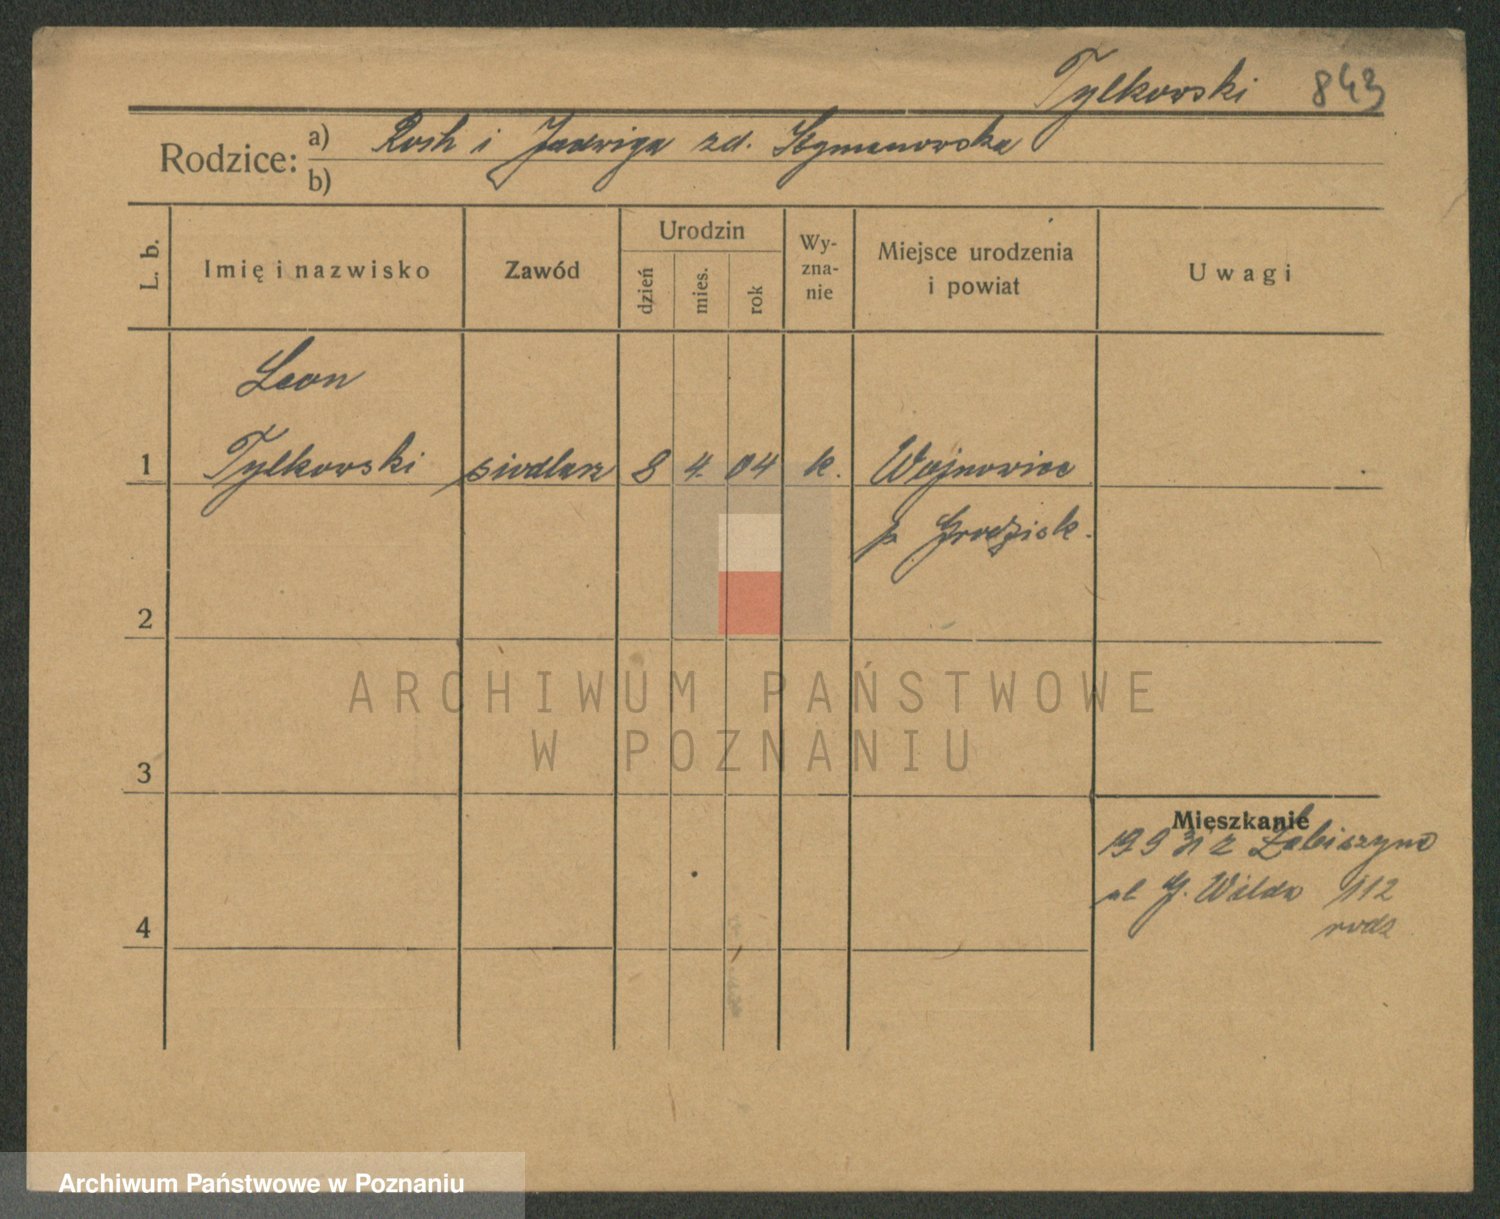 Tylkowski 843
Rodzice: a) Roch i Jadwiga zd. Szymanowska
b)
L. b.
Imię i nazwisko
Zawód
Urodzin
dzień
mies.
rok
Wy-
zna-
nie
Miejsce urodzenia
i powiat
Uwagi
Leon
1 Tylkowski siodlarz 8 4. 04 k. Wojnowice
p. Grodzisk.
2
ARCHIWUM PAŃSTWOWE
W POZNANIU
3
Mieszkanie
19 9 31 z Łabiszyna
ul G. Wilda 112
rodz
4
Archiwum Państwowe w Poznaniu